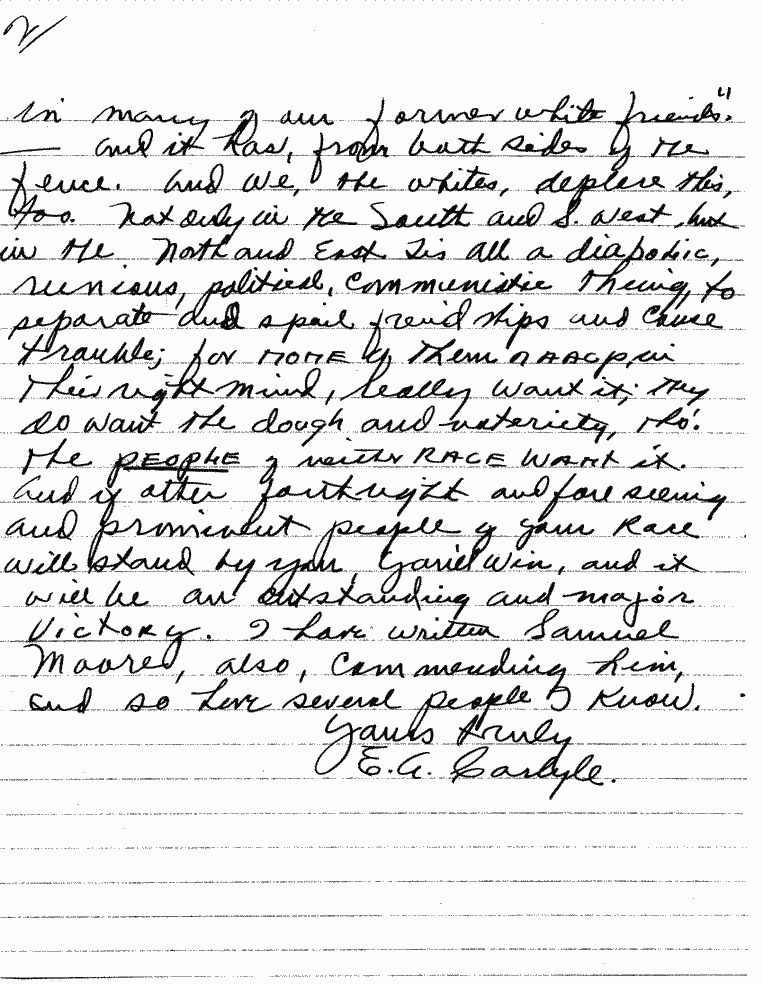 2/
in many of our former white friends."
— and it has, from both sides of the
fence. And we, the whites, deplore this,
too. Not only in the South and S. West, but
in the North and East. Tis all a diabolic,
political, communistic thing, to
separate and spoil friendships and cause
trouble; for NONE of them NAACP, in
their right mind, really want it; they
do want the dough and notoriety, tho'.
The PEOPLE of neither RACE WANT it.
And if other forthright and foreseeing
and prominent people of your Race
will stand by you, win, and it
will be an outstanding and major
Victory. I have written Samuel
Moore, also, commending him,
and so have several people I know.
Yours truly
E.A. Carlyle.